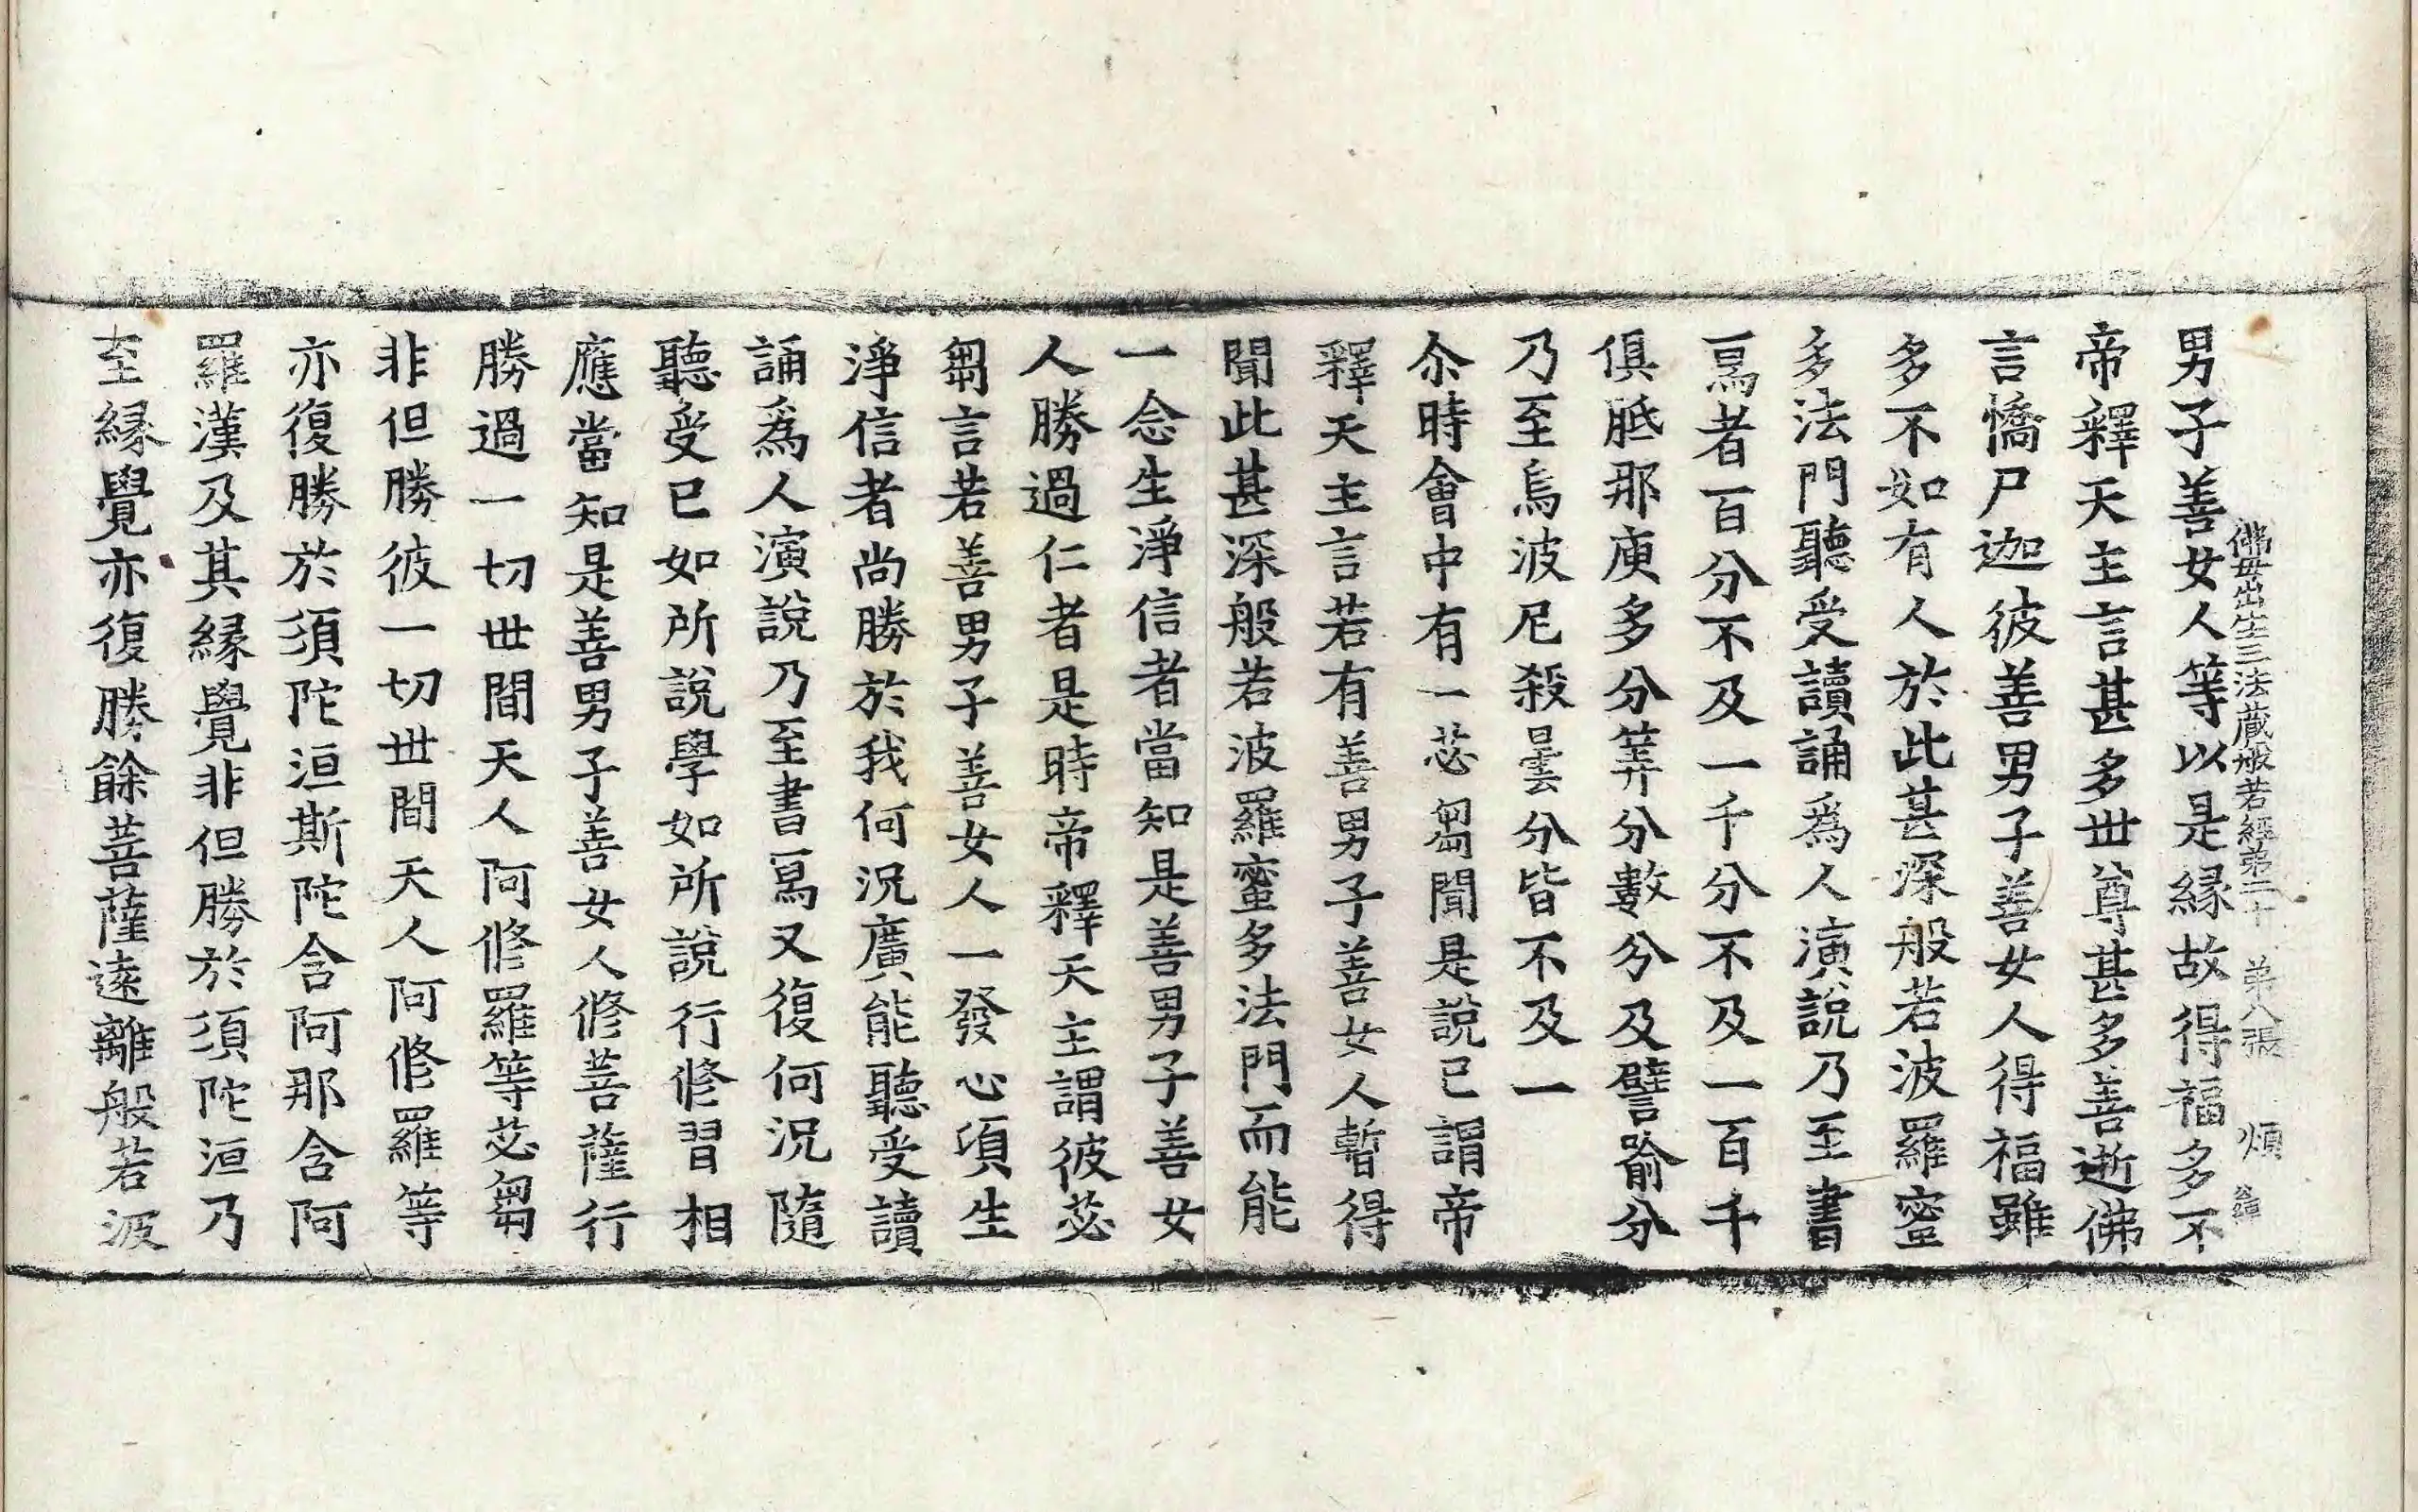 佛母出生三法藏般若經第二十 第八張 煩
男子善女人等以是縁故得福多不
帝釋天主言甚多世尊甚多善逝佛
言憍尸迦彼善男子善女人得福雖
多不如有人於此甚深般若波羅蜜
多法門聽受讀誦爲人演說乃至書
寫者百分不及一千分不及一百千
俱胝那庾多分筭分數分及譬喻分
乃至烏波尼殺曇分皆不及一
尒時會中有一苾芻聞是說已謂帝
釋天主言若有善男子善女人暫得
聞此甚深般若波羅蜜多法門而能
一念生淨信者當知是善男子善女
人勝過仁者是時帝釋天主謂彼苾
芻言若善男子善女人一發心頃生
淨信者尚勝於我何況廣能聽受讀
誦爲人演說乃至書寫又復何況隨
聽受已如所說學如所說行修習相
應當知是善男子善女人修菩薩行
勝過一切世間天人阿修羅等苾芻
非但勝彼一切世間天人阿修羅等
亦復勝於須陀洹斯陀含阿那含阿
羅漢及其縁覺非但勝於須陀洹乃
至縁覺亦復勝餘菩薩遠離般若波